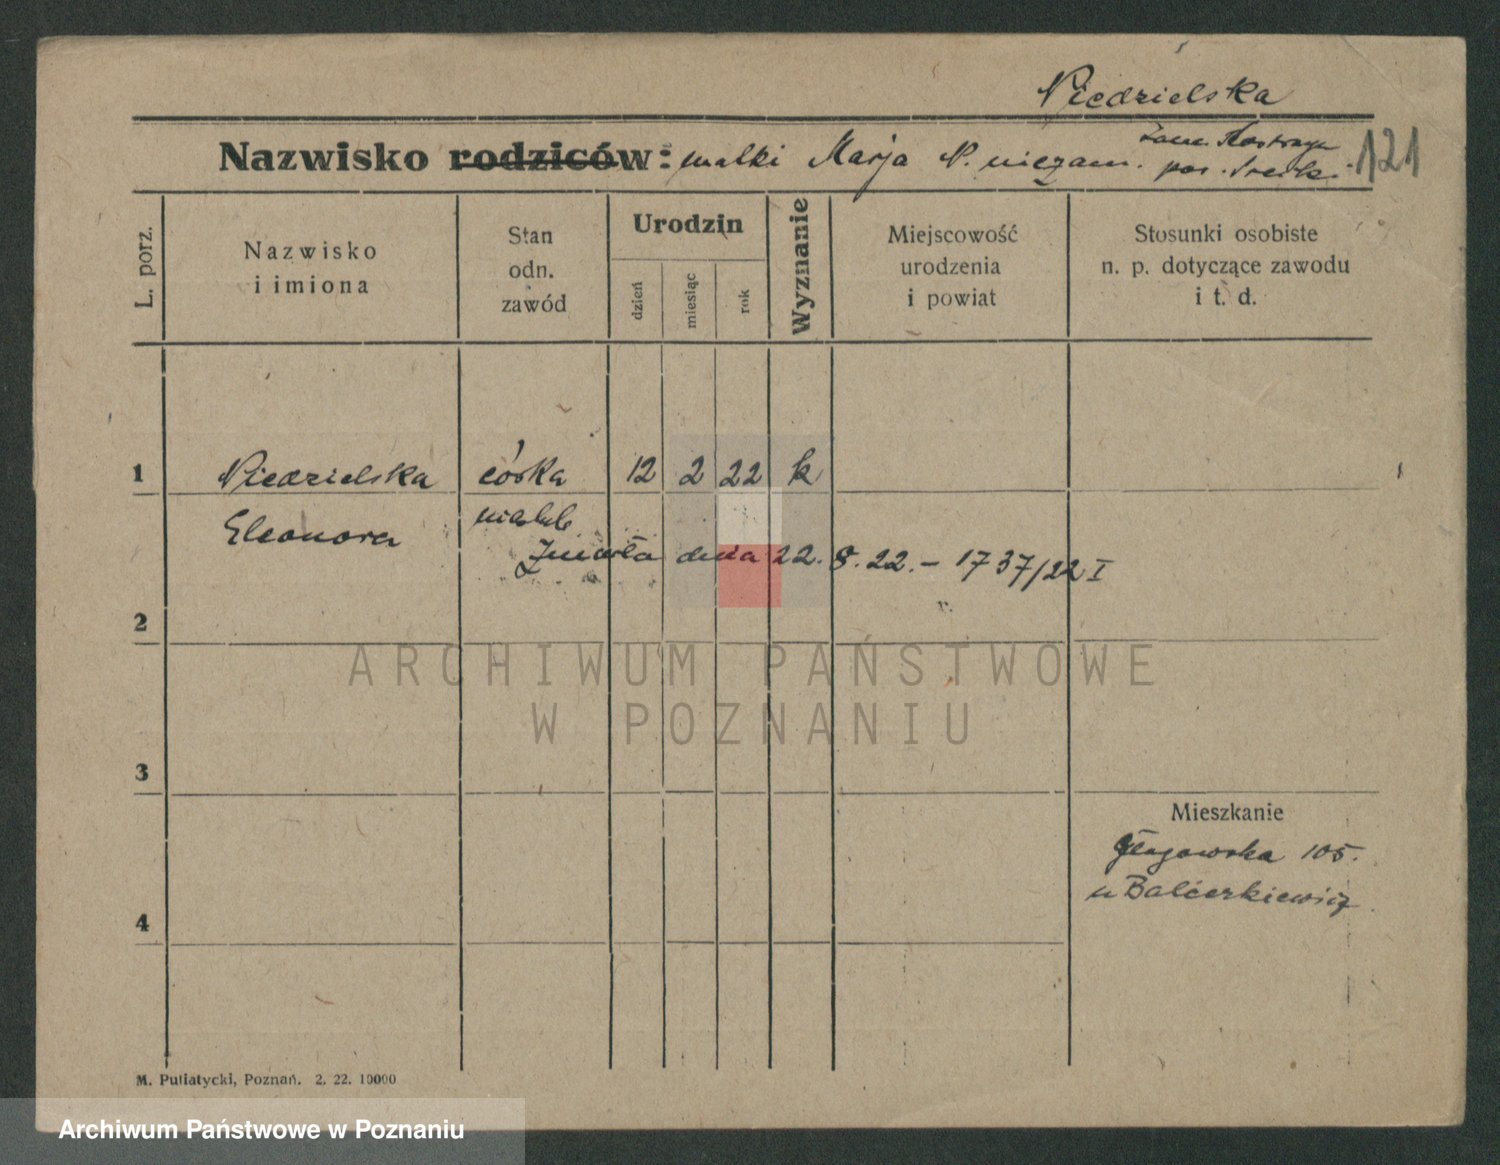 Niedzielska
Nazwisko rodziców: matki Marja N. niezam. zam. Kostrzyn
pow. Średzki 121
L. porz.
Nazwisko
i imiona
Stan
odn.
zawód
Urodzin
dzień
miesiąc
rok
Wyznanie
Miejscowość
urodzenia
i powiat
Stosunki osobiste
n. p. dotyczące zawodu
i t. d.
1 Niedzielska córka 12 2 22 k
Eleonora
Zmarła dnia 22. 8. 22. - 1737/22 I
2
ARCHIWUM PAŃSTWOWE
W POZNANIU
3
Mieszkanie
Głogowska 105.
u Balcerkiewicz
4
M. Putiatycki, Poznań. 2. 22. 10000
Archiwum Państwowe w Poznaniu